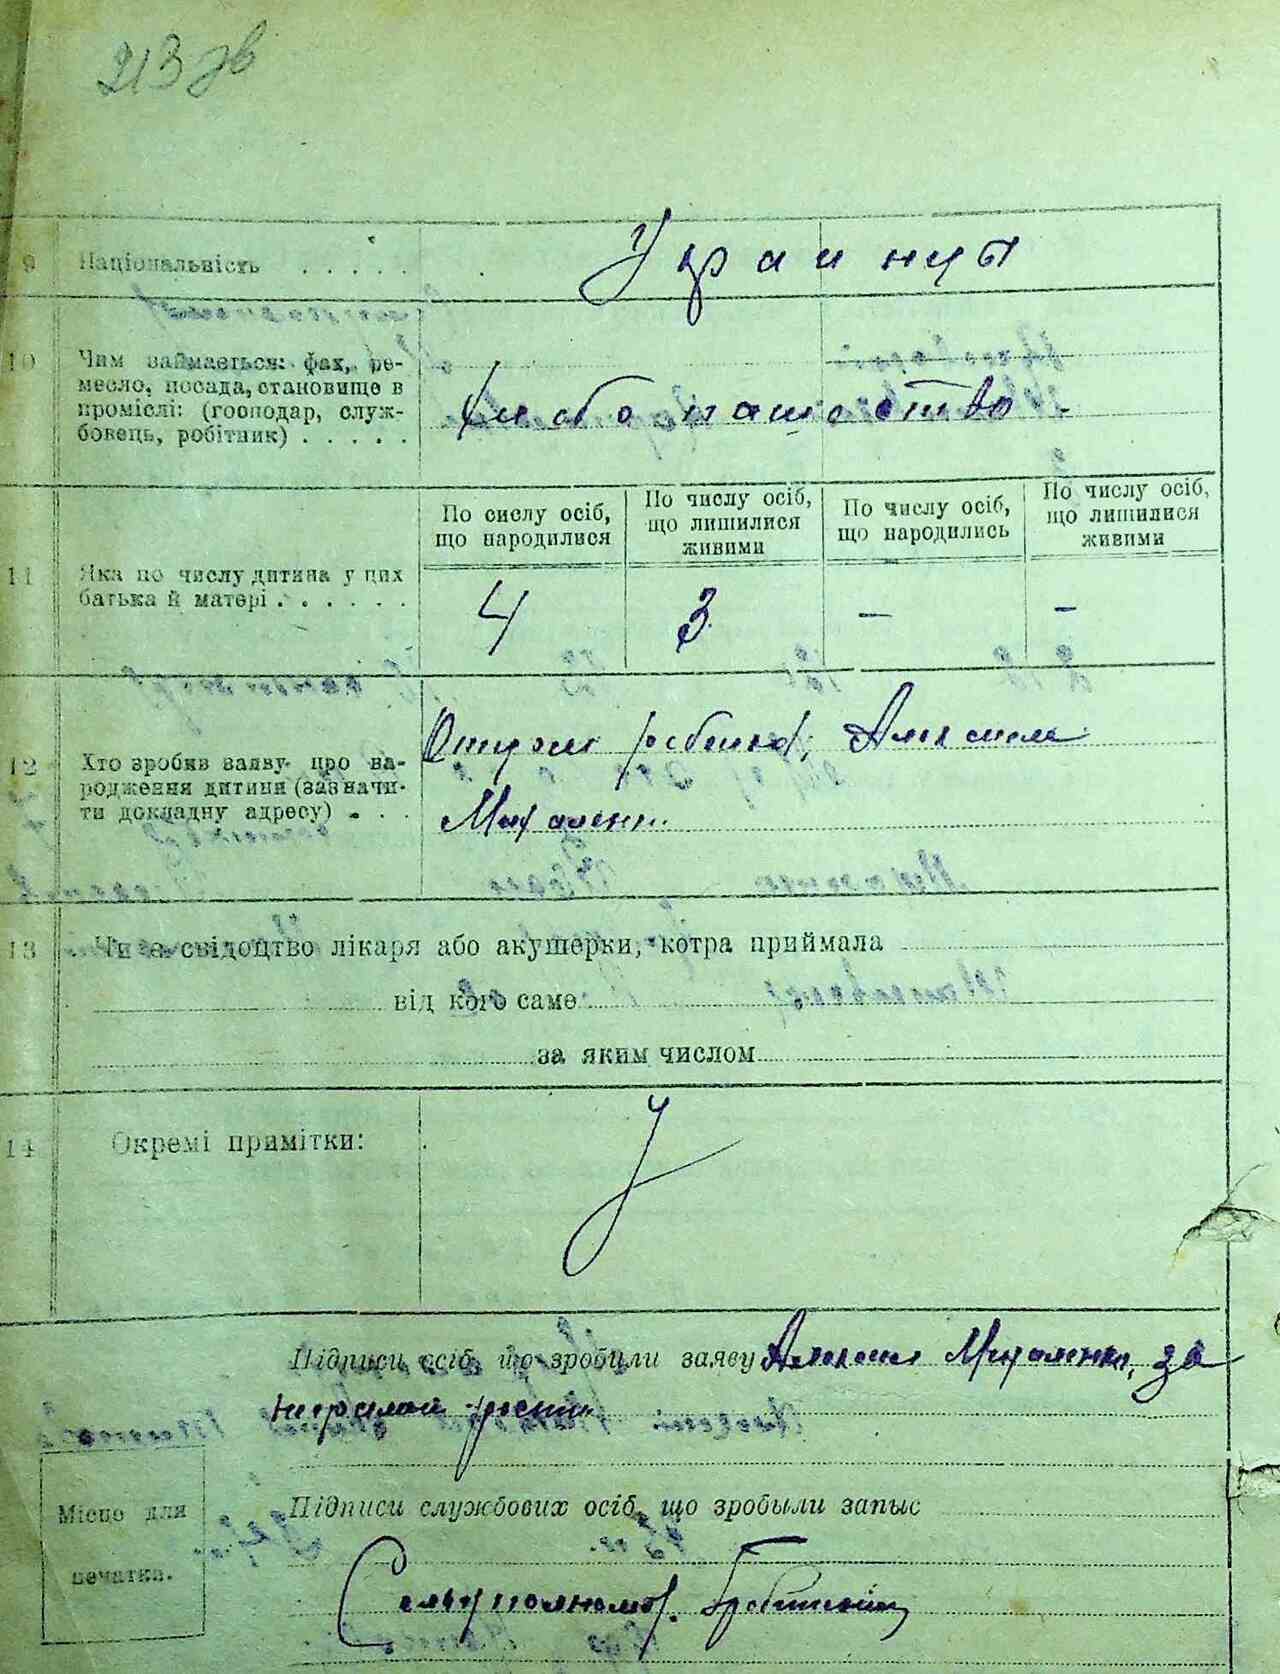 213 зв
9 Національність . . . . . . Украинцы
10 Чим займається: фах, ре-
месло, посада, становище в
проміслі: (господар, служ-
бовець, робітник) . . . . .
Хлебопашество -
По сислу осіб,
що народилися
По числу осіб,
що лишилися
живими
По числу осіб,
що народились
По числу осіб,
що лишилися
живими
11 Яка по числу дитина у цих
батька й матері . . . . . .
4 3 — —
12 Хто зробив заяву про на-
родження дитини (зазначи-
ти докладну адресу) . . .
Отцом ребенка,
13 Чи є свідоцтво лікаря або акушерки, котра приймала
від кого саме
за яким числом
14 Окремі примітки:
Підписи осіб, що зробили заяву за
Місце для
печатка.
Підписи службових осіб, що зробыли запыс